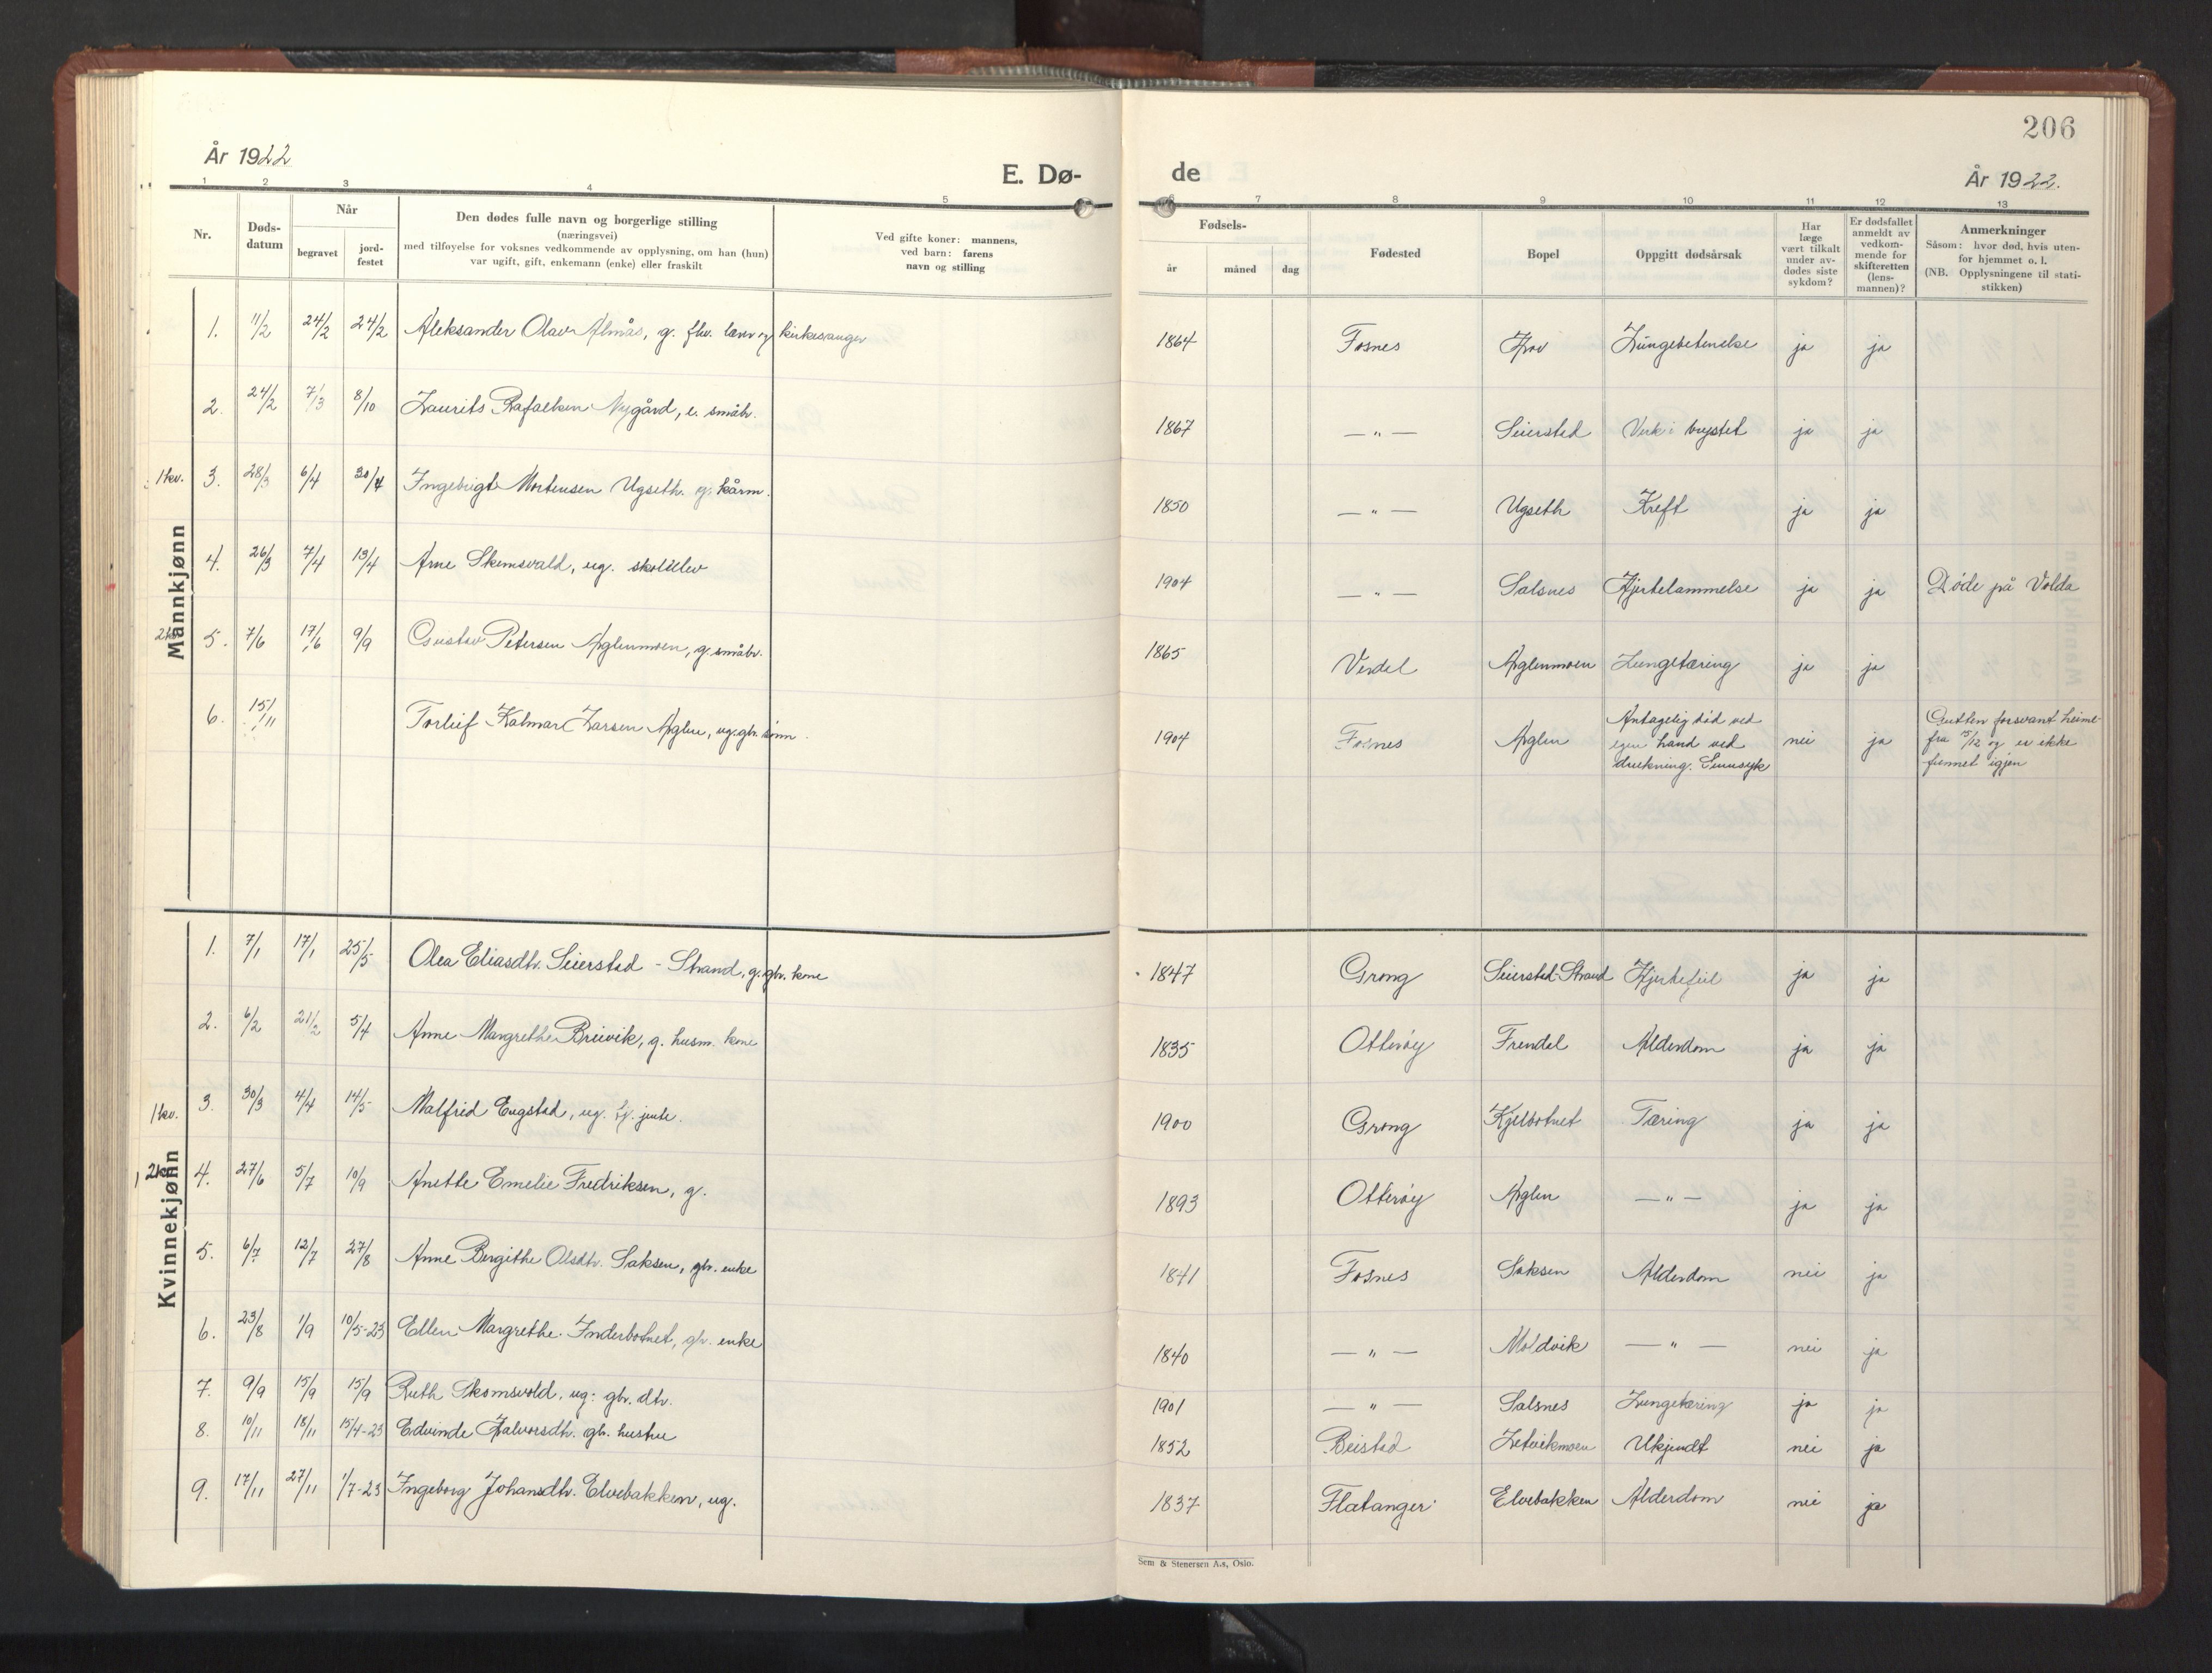 206
År 1922
E. Dø-
de
År 1922.
1 2 3 4 5 6 7 8 9 10 11 12 13
Nr.
Døds-
datum
Når
begravet
jord-
festet
Den dødes fulle navn og borgerlige stilling
(næringsvei)
med tilføyelse for voksnes vedkommende av opplysning, om han (hun)
var ugift, gift, enkemann (enke) eller fraskilt
Ved gifte koner: mannens,
ved barn: farens
navn og stilling
Fødsels-
år
måned
dag
Fødested
Bopel
Oppgitt dødsårsak
Har
læge
vært tilkalt
under av-
dødes siste
sykdom?
Er dødsfallet
anmeldt av
vedkom-
mende for
skifteretten
(lens-
mannen)?
Anmerkninger
Såsom: hvor død, hvis uten-
for hjemmet o. l.
(NB. Opplysningene til stati-
stikken)
Mannkjønn
1. 11/2 24/2 24/2 Aleksander Olav Almås, g. fhv. lærer og kirkesanger 1864 Fosnes Hov Lungebetennelse ja ja
2. 24/2 7/3 8/10 Laurits Rafaelsen Nygård, e. småbr. 1867 — " — Seierstad Verk i brystet ja ja
1 kv. 3. 28/3 6/4 30/4 Ingebrigt Mortensen Ugseth. g. kårm. 1850 — " — Ugseth Kreft ja ja
4. 26/3 7/4 13/4 Arne Skomsvold, ug. skoleelev 1904 — " — Salsnes Hjertelammelse ja ja Døde på Volda
2 kv. 5. 7/6 17/6 9/9 Gustav Petersen Aglenmoen, g. småbr. 1865 Verdal Aglenmoen Lungetæring ja ja
6. 15/11 Torleif Kalmar Larsen Aglen, ug. gbr. sønn. 1904 Fosnes Aglen
Antagelig død ved
egen hånd ved
drukning. Sinnsyk
nei ja
Gutten forsvant heime-
fra 15/12 og er ikke
funnet igjen
Kvinnekjønn
1. 7/1 17/1 25/5 Olea Eliasdtr. Seierstad - Strand, g. gbr. kone 1847 Grong Seierstad-Strand Hjertefeil ja ja
2. 6/2 21/2 5/4 Anne Margrethe Breivik, g. husm. kone 1835 Otterøy Frendel Alderdom ja ja
1 kv. 3. 30/3 4/4 14/5 Malfrid Engstad, ug. tj. jente. 1900 Grong Kjelbotnet Tæring ja ja
2 kv. 4. 27/6 5/7 10/9 Anette Emelie Fredriksen, g. 1893 Otterøy Aglen — " — ja ja
5. 6/7 12/7 27/8 Anne Bergithe Olsdtr. Saksen, gbr. enke 1841 Fosnes Saksen Alderdom nei ja
6. 23/8 1/9 10/5-23 Ellen Margrethe Inderbotnet, gbr. enke 1840 — " — Moldvik — " — nei ja
7. 9/9 15/9 15/9 Ruth Skomsvold, ug: gbr. dtr. 1901 — " — Salsnes Lungetæring ja ja
8. 10/11 18/11 15/4-23 Edvinde Halvorsdtr. gb. hustru 1852 Beistad Letvikmoen Ukjendt nei ja
9. 17/11 27/11 1/7-23 Ingeborg Johansdtr. Elvebakken, ug. 1837 Flatanger Elvebakken Alderdom nei ja
Sem & Stenersen A.s, Oslo.